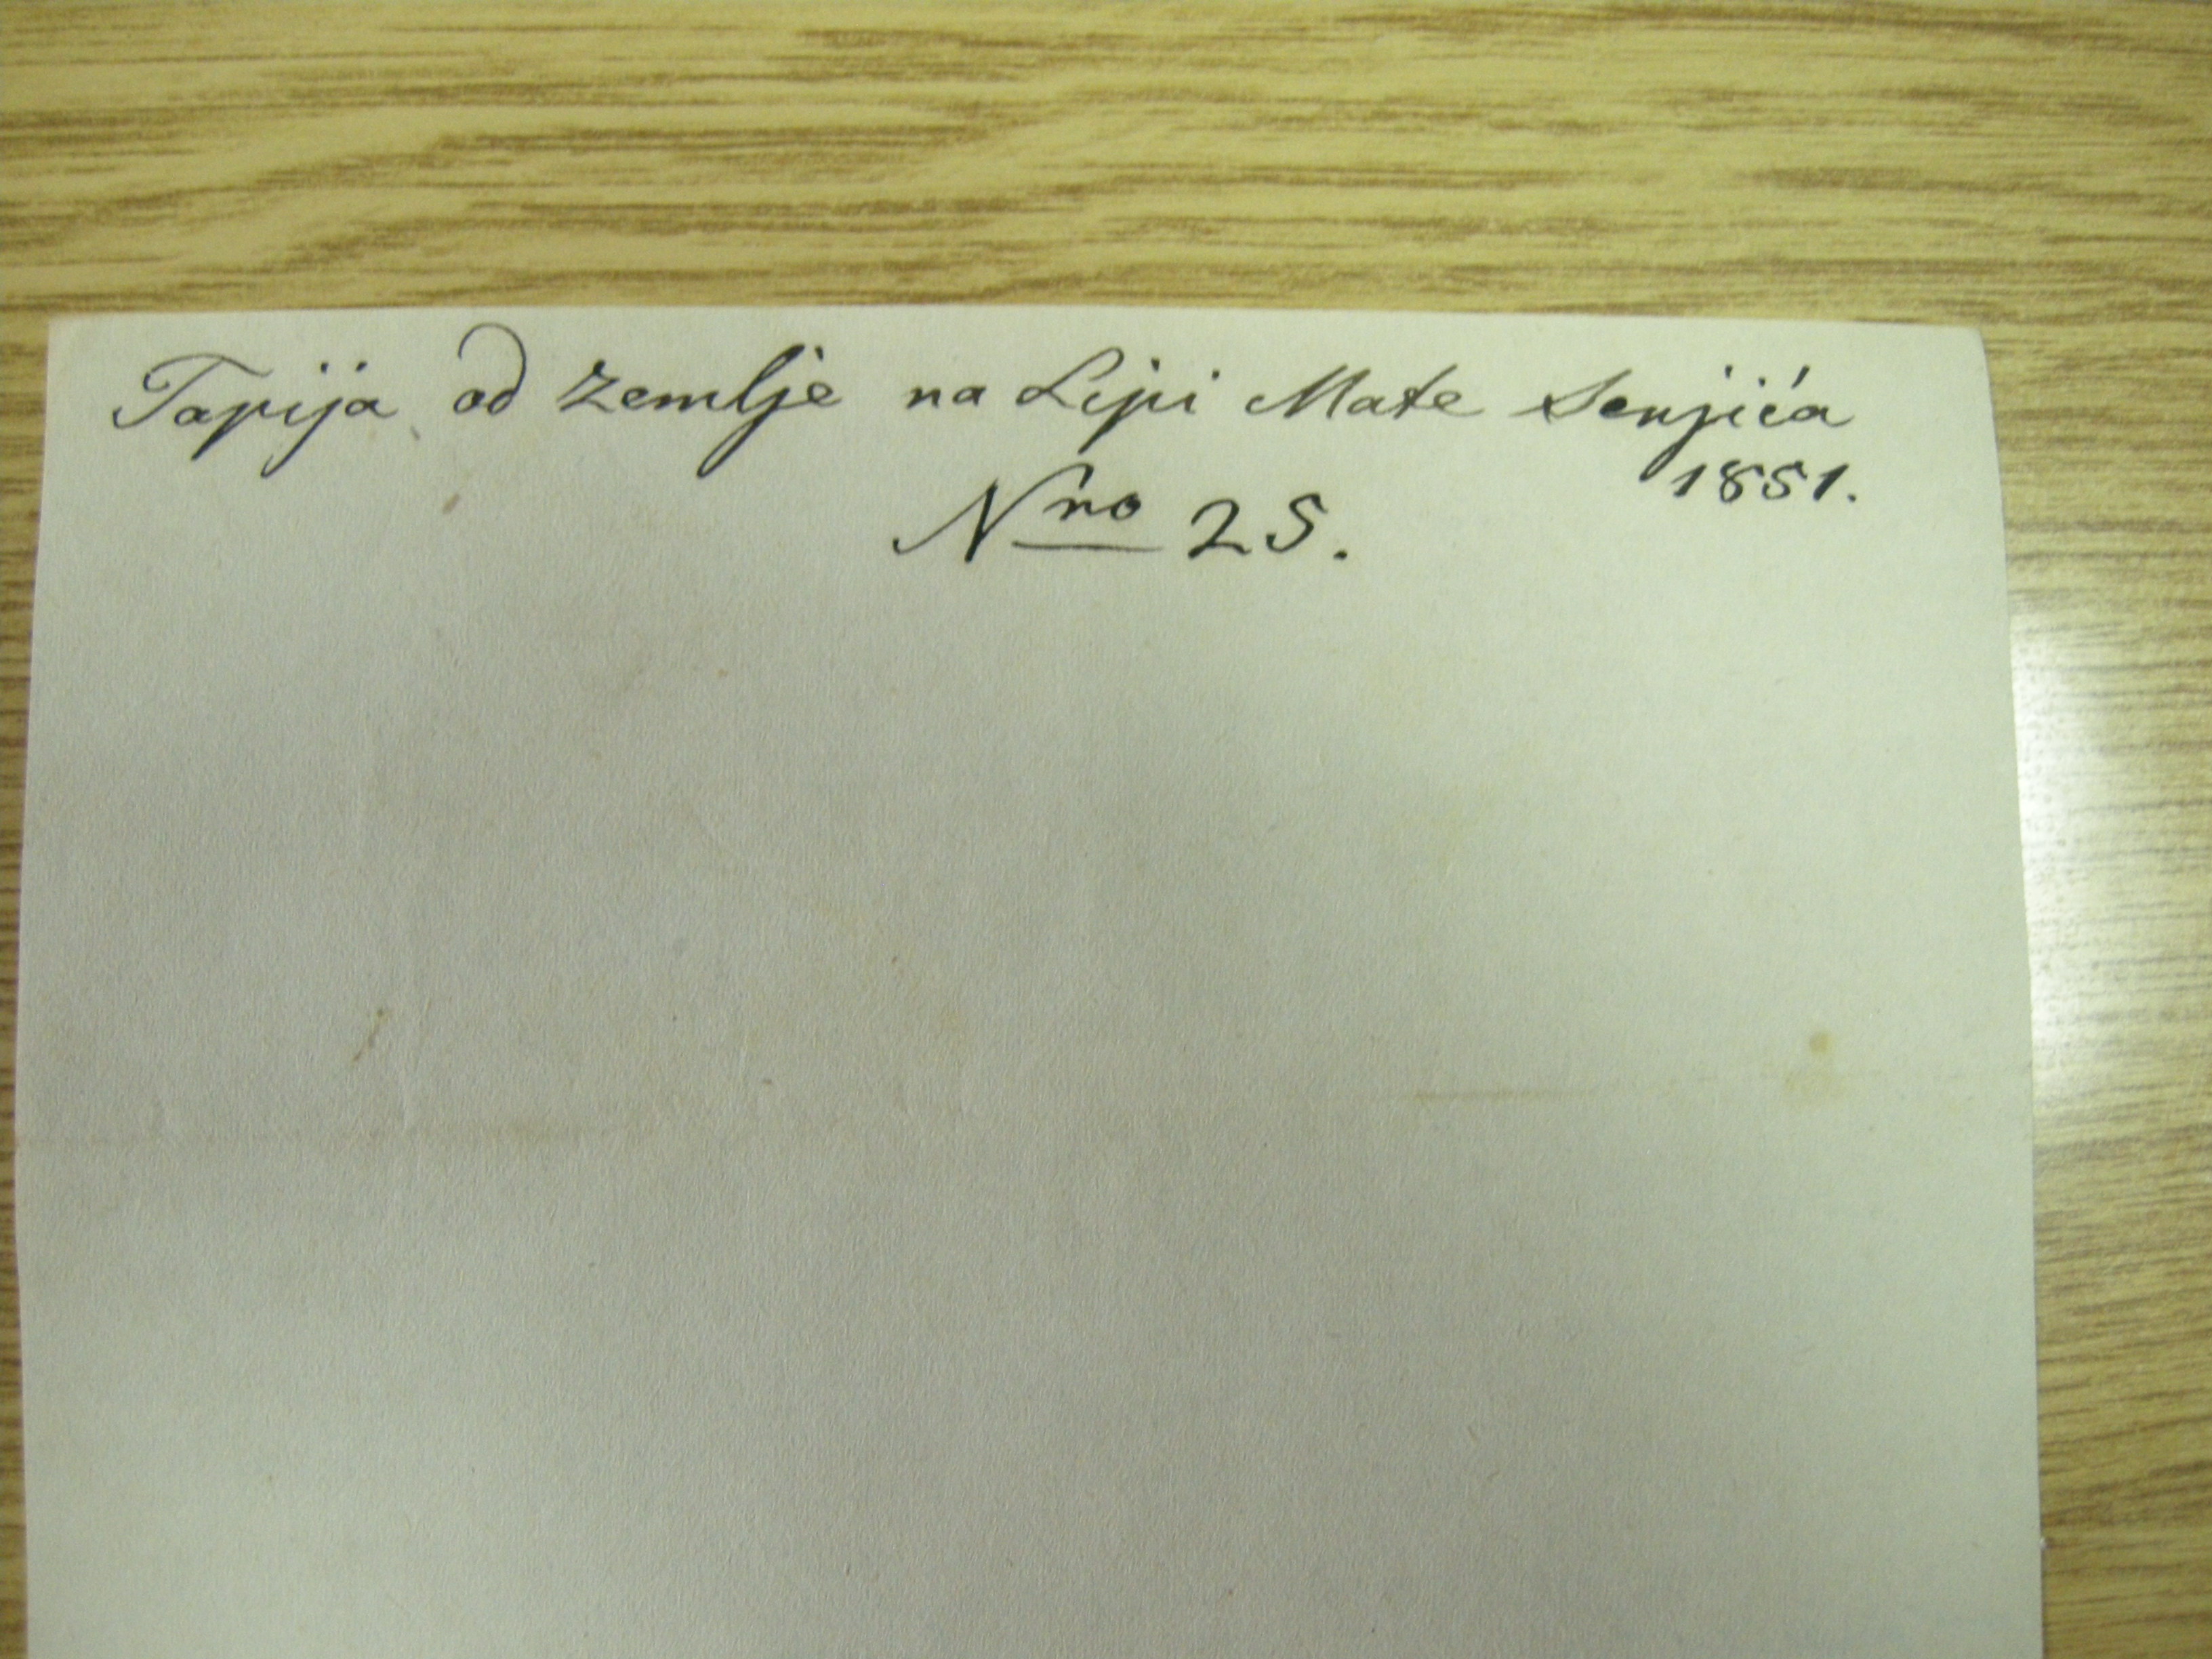 Tapija od zemlje na Lipi Mate Senjića
1851.
Nro 25.